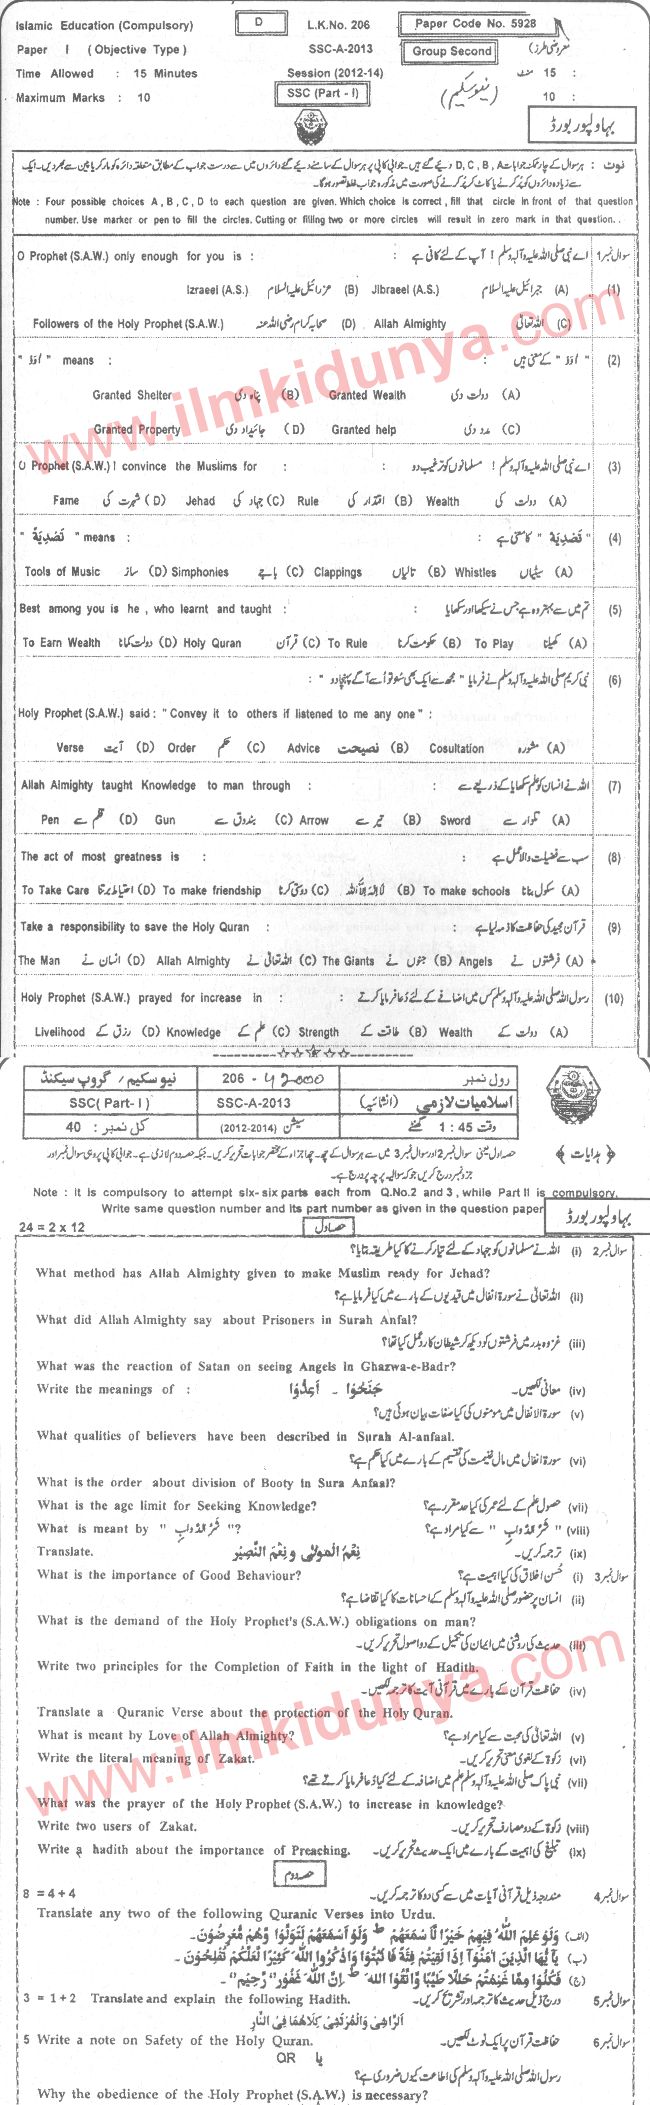 Islamic Education (Compulsory) D L.K.No. 206 Paper Code No. 5928
Paper I (Objective Type) SSC-A-2013 Group Second معروضی طرز)
Time Allowed : 15 Minutes Session (2012-14) 15 منٹ :
Maximum Marks : 10 SSC (Part - I) (نیو سکیم) 10 :
بہاولپور بورڈ
نوٹ : ہر سوال کے چار ممکنہ جوابات D, C, B, A دیئے گئے ہیں۔ جوابی کاپی پر ہر سوال کے سامنے دیئے گئے دائروں میں سے درست جواب کے مطابق متعلقہ دائرہ کو مارکر یا پین سے بھر دیں۔ ایک
سے زیادہ دائروں کو پُر کرنے یا کاٹ کر پُر کرنے کی صورت میں مذکورہ جواب غلط تصور ہو گا۔
Note : Four possible choices A , B , C , D to each question are given. Which choice is correct , fill that circle in front of that question
number. Use marker or pen to fill the circles. Cutting or filling two or more circles will result in zero mark in that question. .
O Prophet (S.A.W.) only enough for you is : : اے نبی صلی اللہ علیہ وآلہ وسلم ! آپ کے لئے کافی ہے سوال نمبر 1
Izraeel (A.S.) عزرائیل علیہ السلام (B) Jibraeel (A.S.) جبرائیل علیہ السلام (A) (1)
Followers of the Holy Prophet (S.A.W.) صحابہ کرام رضی اللہ عنہ (D) Allah Almighty اللہ تعالیٰ (C)
www.ilmkidunya.com
" اٰوَوْا " means : : " اٰوَوْا " کے معنی ہیں (2)
Granted Shelter پناہ دی (B) Granted Wealth دولت دی (A)
Granted Property جائیداد دی (D) Granted help مدد دی (C)
O Prophet (S.A.W.) ! convince the Muslims for : : اے نبی صلی اللہ علیہ وآلہ وسلم ! مسلمانوں کو ترغیب دو (3)
Fame شہرت کی (D) Jehad جہاد کی (C) Rule اقتدار کی (B) Wealth دولت کی (A)
" تَصْدِيَة " means : : " تَصْدِيَة " کا معنی ہے (4)
Tools of Music ساز (D) Simphonies باجے (C) Clappings تالیاں (B) Whistles سیٹیاں (A)
Best among you is he , who learnt and taught : : تم میں سے بہتر وہ ہے جس نے سیکھا اور سکھایا (5)
To Earn Wealth دولت کمانا (D) Holy Quran قرآن (C) To Rule حکومت کرنا (B) To Play کھیلنا (A)
نبی کریم صلی اللہ علیہ وآلہ وسلم نے فرمایا " مجھ سے ایک بھی سنو تو اُسے آگے پہنچا دو " : (6)
Holy Prophet (S.A.W.) said : " Convey it to others if listened to me any one " :
Verse آیت (D) Order حکم (C) Advice نصیحت (B) Cosultation مشورہ (A)
Allah Almighty taught Knowledge to man through : : اللہ نے انسان کو علم سکھایا کے ذریعے سے (7)
Pen قلم سے (D) Gun بندوق سے (C) Arrow تیر سے (B) Sword تلوار سے (A)
The act of most greatness is : : سب سے فضیلت والا عمل ہے (8)
To Take Care احتیاط برتنا (D) To make friendship دوستی کرنا (C) لا الہ الا اللہ (B) To make schools سکول بنانا (A)
Take a responsibility to save the Holy Quran : : قرآن مجید کی حفاظت کا ذمہ لیا ہے (9)
The Man انسان نے (D) Allah Almighty اللہ تعالیٰ نے (C) The Giants جنوں نے (B) Angels فرشتوں نے (A)
Holy Prophet (S.A.W.) prayed for increase in : : رسول اللہ صلی اللہ علیہ وآلہ وسلم کس میں اضافے کے لئے دُعا فرمایا کرتے (10)
Livelihood رزق کے (D) Knowledge علم کے (C) Strength طاقت کے (B) Wealth دولت کے (A)
نیو سکیم / گروپ سیکنڈ 206 - 42000 رول نمبر
SSC( Part- I ) SSC-A-2013 اسلامیات لازمی (انشائیہ)
کل نمبر : 40 سیشن (2012-2014) وقت 1 : 45 گھنٹے
﴿ ہدایات ﴾ حصہ اول یعنی سوال نمبر 2 اور سوال نمبر 3 میں سے ہر سوال کے چھ۔ چھ اجزاء کے مختصر جوابات تحریر کریں۔ جبکہ حصہ دوم لازمی ہے۔ جوابی کاپی پر وہی سوال نمبر اور
جز نمبر درج کریں جو کہ سوالیہ پرچہ پر درج ہے۔
Note : It is compulsory to attempt six- six parts each from Q.No.2 and 3 , while Part II is compulsory.
Write same question number and its part number as given in the question paper
بہاولپور بورڈ
24 = 2 x 12 حصہ اول
سوال نمبر 2 (i) اللہ نے مسلمانوں کو جہاد کے لئے تیار کرنے کا کیا طریقہ بتایا؟
What method has Allah Almighty given to make Muslim ready for Jehad?
(ii) اللہ تعالیٰ نے سورۃ انفال میں قیدیوں کے بارے میں کیا فرمایا ہے؟
What did Allah Almighty say about Prisoners in Surah Anfal?
(iii) غزوہ بدر میں فرشتوں کو دیکھ کر شیطان کا ردعمل کیا تھا؟
What was the reaction of Satan on seeing Angels in Ghazwa-e-Badr?
Write the meanings of : جَنَحُوْا ۔ اَعِدُّوْا (iv) معانی لکھیں۔
(v) سورۃ الانفال میں مومنوں کی کیا صفات بیان ہوئی ہیں؟
What qualities of believers have been described in Surah Al-anfaal.
(vi) سورۃ انفال میں مال غنیمت کی تقسیم کے بارے میں کیا حکم ہے؟
What is the order about division of Booty in Sura Anfaal?
What is the age limit for Seeking Knowledge? (vii) حصول علم کے لئے عمر کی کیا حد مقرر ہے؟
What is meant by " شَرَّ الدَّوَابِّ "? (viii) " شَرَّ الدَّوَابِّ " سے کیا مراد ہے؟
Translate. نِعْمَ الْمَوْلٰى وَ نِعْمَ النَّصِيْر (ix) ترجمہ کریں۔
What is the importance of Good Behaviour? سوال نمبر 3 (i) حُسن اخلاق کی کیا اہمیت ہے؟
(ii) انسان پر حضور صلی اللہ علیہ وآلہ وسلم کے احسانات کا کیا تقاضا ہے؟
What is the demand of the Holy Prophet's (S.A.W.) obligations on man?
(iii) حدیث کی روشنی میں ایمان کی تکمیل کے دو اصول تحریر کریں۔
Write two principles for the Completion of Faith in the light of Hadith.
(iv) حفاظت قرآن کے بارے میں قرآنی آیت کا ترجمہ لکھیں۔
Translate a Quranic Verse about the protection of the Holy Quran.
What is meant by Love of Allah Almighty? (v) اللہ تعالیٰ کی محبت سے کیا مراد ہے؟
Write the literal meaning of Zakat. (vi) زکوٰۃ کے لغوی معنی تحریر کریں۔
(vii) نبی پاک صلی اللہ علیہ وآلہ وسلم علم میں اضافہ کے لئے کیا دُعا فرمایا کرتے تھے؟
What was the prayer of the Holy Prophet (S.A.W.) to increase in knowledge?
Write two users of Zakat. (viii) زکوٰۃ کے دو مصارف تحریر کریں۔
Write a hadith about the importance of Preaching. (ix) تبلیغ کی اہمیت کے بارے میں ایک حدیث تحریر کریں۔
www.ilmkidunya.com
حصہ دوم
8 = 4 + 4 سوال نمبر 4 مندرجہ ذیل قرآنی آیات میں سے کسی دو کا ترجمہ کریں۔
Translate any two of the following Quranic Verses into Urdu.
(الف) وَلَوْ عَلِمَ اللّٰهُ فِيْهِمْ خَيْرًا لَّاَسْمَعَهُمْ ط وَلَوْ اَسْمَعَهُمْ لَتَوَلَّوْا وَّهُمْ مُّعْرِضُوْنَ۔
(ب) يٰٓاَيُّهَا الَّذِيْنَ اٰمَنُوْٓا اِذَا لَقِيْتُمْ فِئَةً فَاثْبُتُوْا وَاذْكُرُوا اللّٰهَ كَثِيْرًا لَّعَلَّكُمْ تُفْلِحُوْنَ۔
(ج) فَكُلُوْا مِمَّا غَنِمْتُمْ حَلٰلًا طَيِّبًا وَّاتَّقُوا اللّٰهَ ط اِنَّ اللّٰهَ غَفُوْرٌ رَّحِيْمٌ۔
3 = 1 + 2 Translate and explain the following Hadith. سوال نمبر 5 درج ذیل حدیث کا ترجمہ اور تشریح کریں۔
اَلرَّاشِیْ وَالْمُرْتَشِیْ كِلَاهُمَا فِی النَّارِ
5 Write a note on Safety of the Holy Quran. سوال نمبر 6 حفاظت قرآن پر ایک نوٹ لکھیں۔
OR یا
رسول اللہ صلی اللہ علیہ وآلہ وسلم کی اطاعت کیوں ضروری ہے؟
Why the obedience of the Holy Prophet (S.A.W.) is necessary?